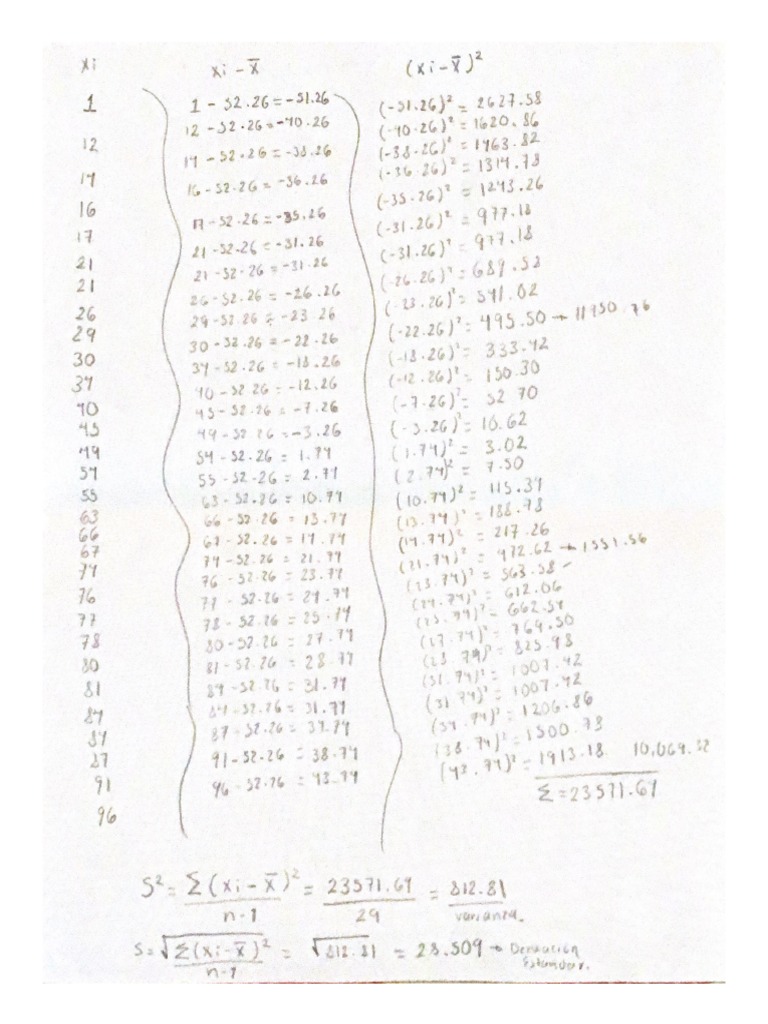 xi    xi - x̄    (xi - x̄)²
1    1 - 52.26 = -51.26    (-51.26)² = 2627.58
12    12 - 52.26 = -40.26    (-40.26)² = 1620.86
14    14 - 52.26 = -38.26    (-38.26)² = 1463.82
16    16 - 52.26 = -36.26    (-36.26)² = 1314.78
17    17 - 52.26 = -35.26    (-35.26)² = 1243.26
21    21 - 52.26 = -31.26    (-31.26)² = 977.18
21    21 - 52.26 = -31.26    (-31.26)² = 977.18
26    26 - 52.26 = -26.26    (-26.26)² = 689.58
29    29 - 52.26 = -23.26    (-23.26)² = 541.02
30    30 - 52.26 = -22.26    (-22.26)² = 495.50 → 11950.76
34    34 - 52.26 = -18.26    (-18.26)² = 333.42
40    40 - 52.26 = -12.26    (-12.26)² = 150.30
45    45 - 52.26 = -7.26    (-7.26)² = 52.70
49    49 - 52.26 = -3.26    (-3.26)² = 10.62
54    54 - 52.26 = 1.74    (1.74)² = 3.02
55    55 - 52.26 = 2.74    (2.74)² = 7.50
63    63 - 52.26 = 10.74    (10.74)² = 115.34
66    66 - 52.26 = 13.74    (13.74)² = 188.78
67    67 - 52.26 = 14.74    (14.74)² = 217.26
74    74 - 52.26 = 21.74    (21.74)² = 472.62 → 1551.56
76    76 - 52.26 = 23.74    (23.74)² = 563.58
77    77 - 52.26 = 24.74    (24.74)² = 612.06
78    78 - 52.26 = 25.74    (25.74)² = 662.54
80    80 - 52.26 = 27.74    (27.74)² = 769.50
81    81 - 52.26 = 28.74    (28.74)² = 825.98
84    84 - 52.26 = 31.74    (31.74)² = 1007.42
84    84 - 52.26 = 31.74    (31.74)² = 1007.42
87    87 - 52.26 = 34.74    (34.74)² = 1206.86
91    91 - 52.26 = 38.74    (38.74)² = 1500.78
96    96 - 52.26 = 43.74    (43.74)² = 1913.18    10,069.32
Σ = 23571.64
S² = Σ(xi - x̄)² / n-1 = 23571.64 / 29 = 812.81 varianza.
S = √Σ(xi - x̄)² / n-1 = √812.81 = 28.509 → Desviación Estandar.